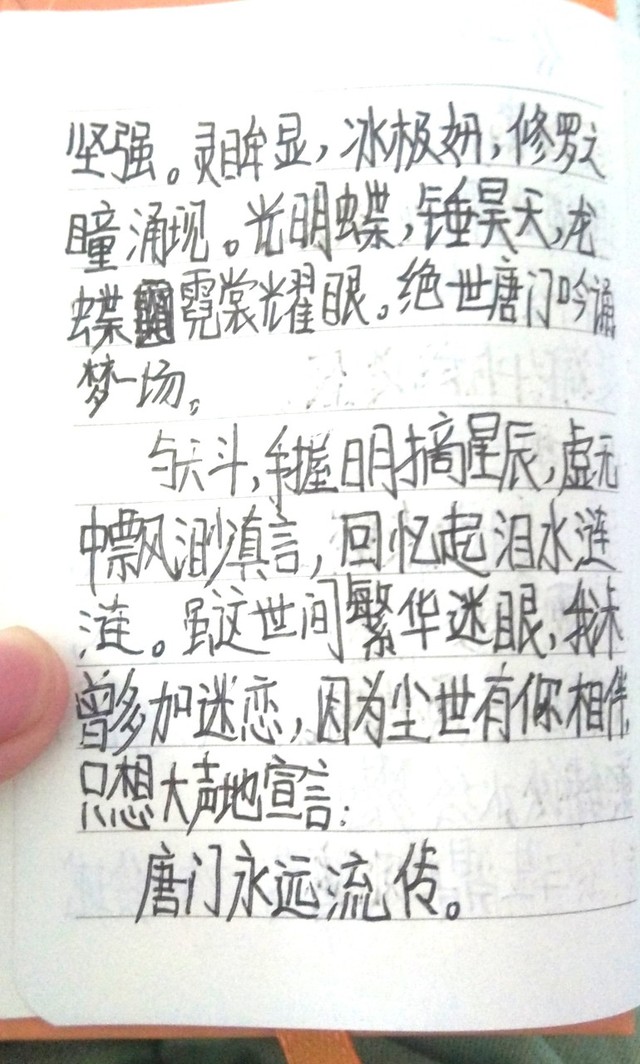 坚强。灵眸显，冰极妍，修罗
瞳涌现。光明蝶，锤昊天，龙
蝶霓裳耀眼。绝世唐门吟诵
梦一场。
与天斗，手握日月摘星辰，虚无
中飘渺真言，回忆起泪水涟
涟。虽这世间繁华迷眼，我未
曾多加迷恋，因为尘世有你相伴，
只想大声地宣言：
唐门永远流传。